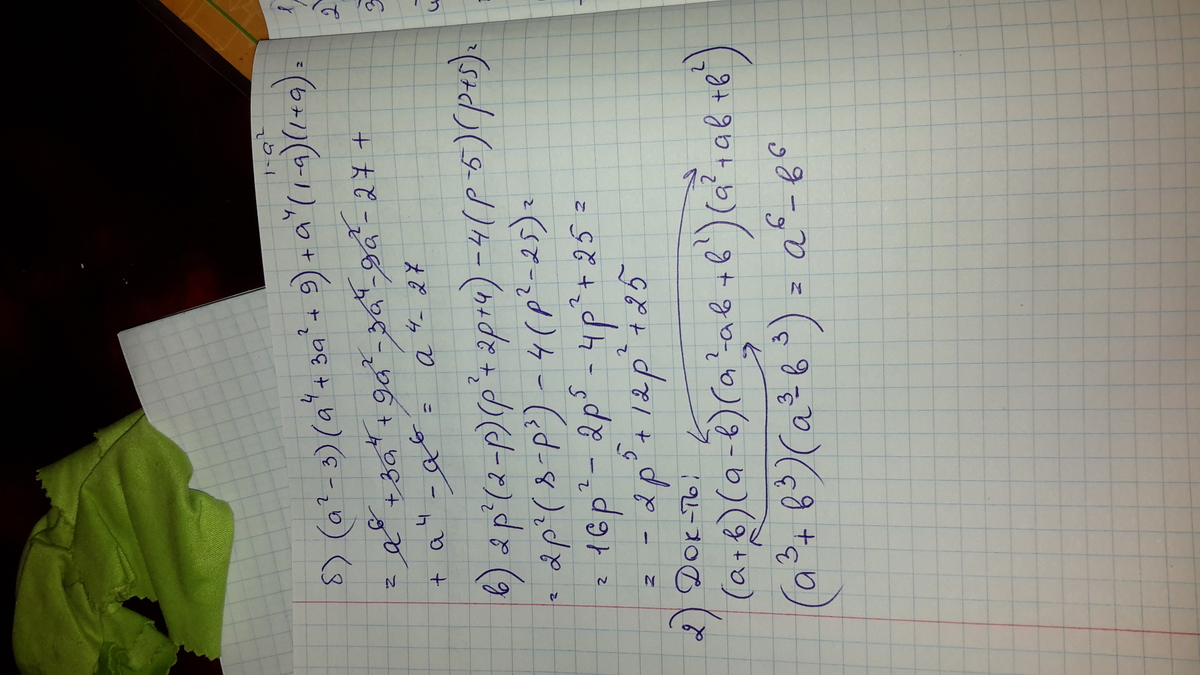 б) (a² - 3)(a⁴ + 3a² + 9) + a⁴(1-a)(1+a) =
1-a²
= a⁶ + 3a⁴ + 9a² - 3a⁴ - 9a² - 27 +
+ a⁴ - a⁶ = a⁴ - 27
в) 2p²(2-p)(p²+2p+4) - 4(p-5)(p+5) =
= 2p²(8-p³) - 4(p²-25) =
= 16p² - 2p⁵ - 4p² + 25 =
= - 2p⁵ + 12p² + 25
2) Док-ть:
(a+в)(a-в)(a²-aв+в²)(a²+aв+в²)
(a³+в³)(a³-в³) = a⁶-в⁶
1)
2)
3